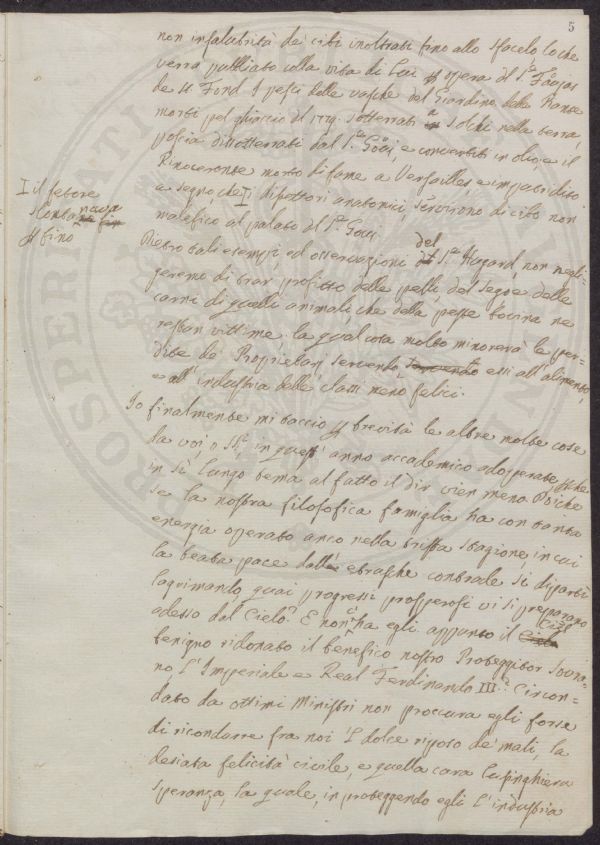 5
non insalubrità de' cibi inoltrati fino allo sfacelo loche
verrà pubbliato colla vita di Lui opera del Sr. Foujas
de St. Fond. I pesci delle vasche del Giardino delle Piante
morti pel ghiaccio del 1779. sotterrati a Solchi nella terra,
poscia dissotterrati dal Sr. Goüi, e convertiti in olio, e il
Rinoceronte morto di fame a Versailles, e imputridito
a segno, che I dipettori anatomici servirono di cibo non
malefico al palato del Sr. Goüi.
I il fetore
stento
fino
Dietro tali esempj, ed osservazioni del Sr. Huzard, non negli-
geremo di trar profitto delle pelli, del sego e delle
carni di quelli animali, che della peste bovina ne
restan vittime, la qual cosa molto minorerà le per-
dite de' Proprietarj servendo essi all'alimento,
e all'industria delle classi meno felici.
Io finalmente mi taccio brevità le altre molte cose
da voi, o SSri, in quest' anno accademico adoperate
in sì lungo tema al fatto il dir vien meno. Poiche
se la nostra filosofica famiglia ha con tanta
energia operato anco nella trista stagione, in cui
la beata pace dalle etrusche contrade si dipartì
lagrimando, quai progressi prosperosi vi si preparano
adesso dal Cielo. E non ci ha egli appunto il Ciel
benigno ridonato il benefico nostro Proteggitor Sovra-
no, l'Imperiale e Real Ferdinando III? Circon-
dato da ottimi Ministri non proccura egli forse
di ricondurre fra noi 'l dolce riposo de' mali, la
desiata felicità civile, e quella cara lusinghiera
speranza, la quale, in proteggendo egli l'industria
PROSPERITATI